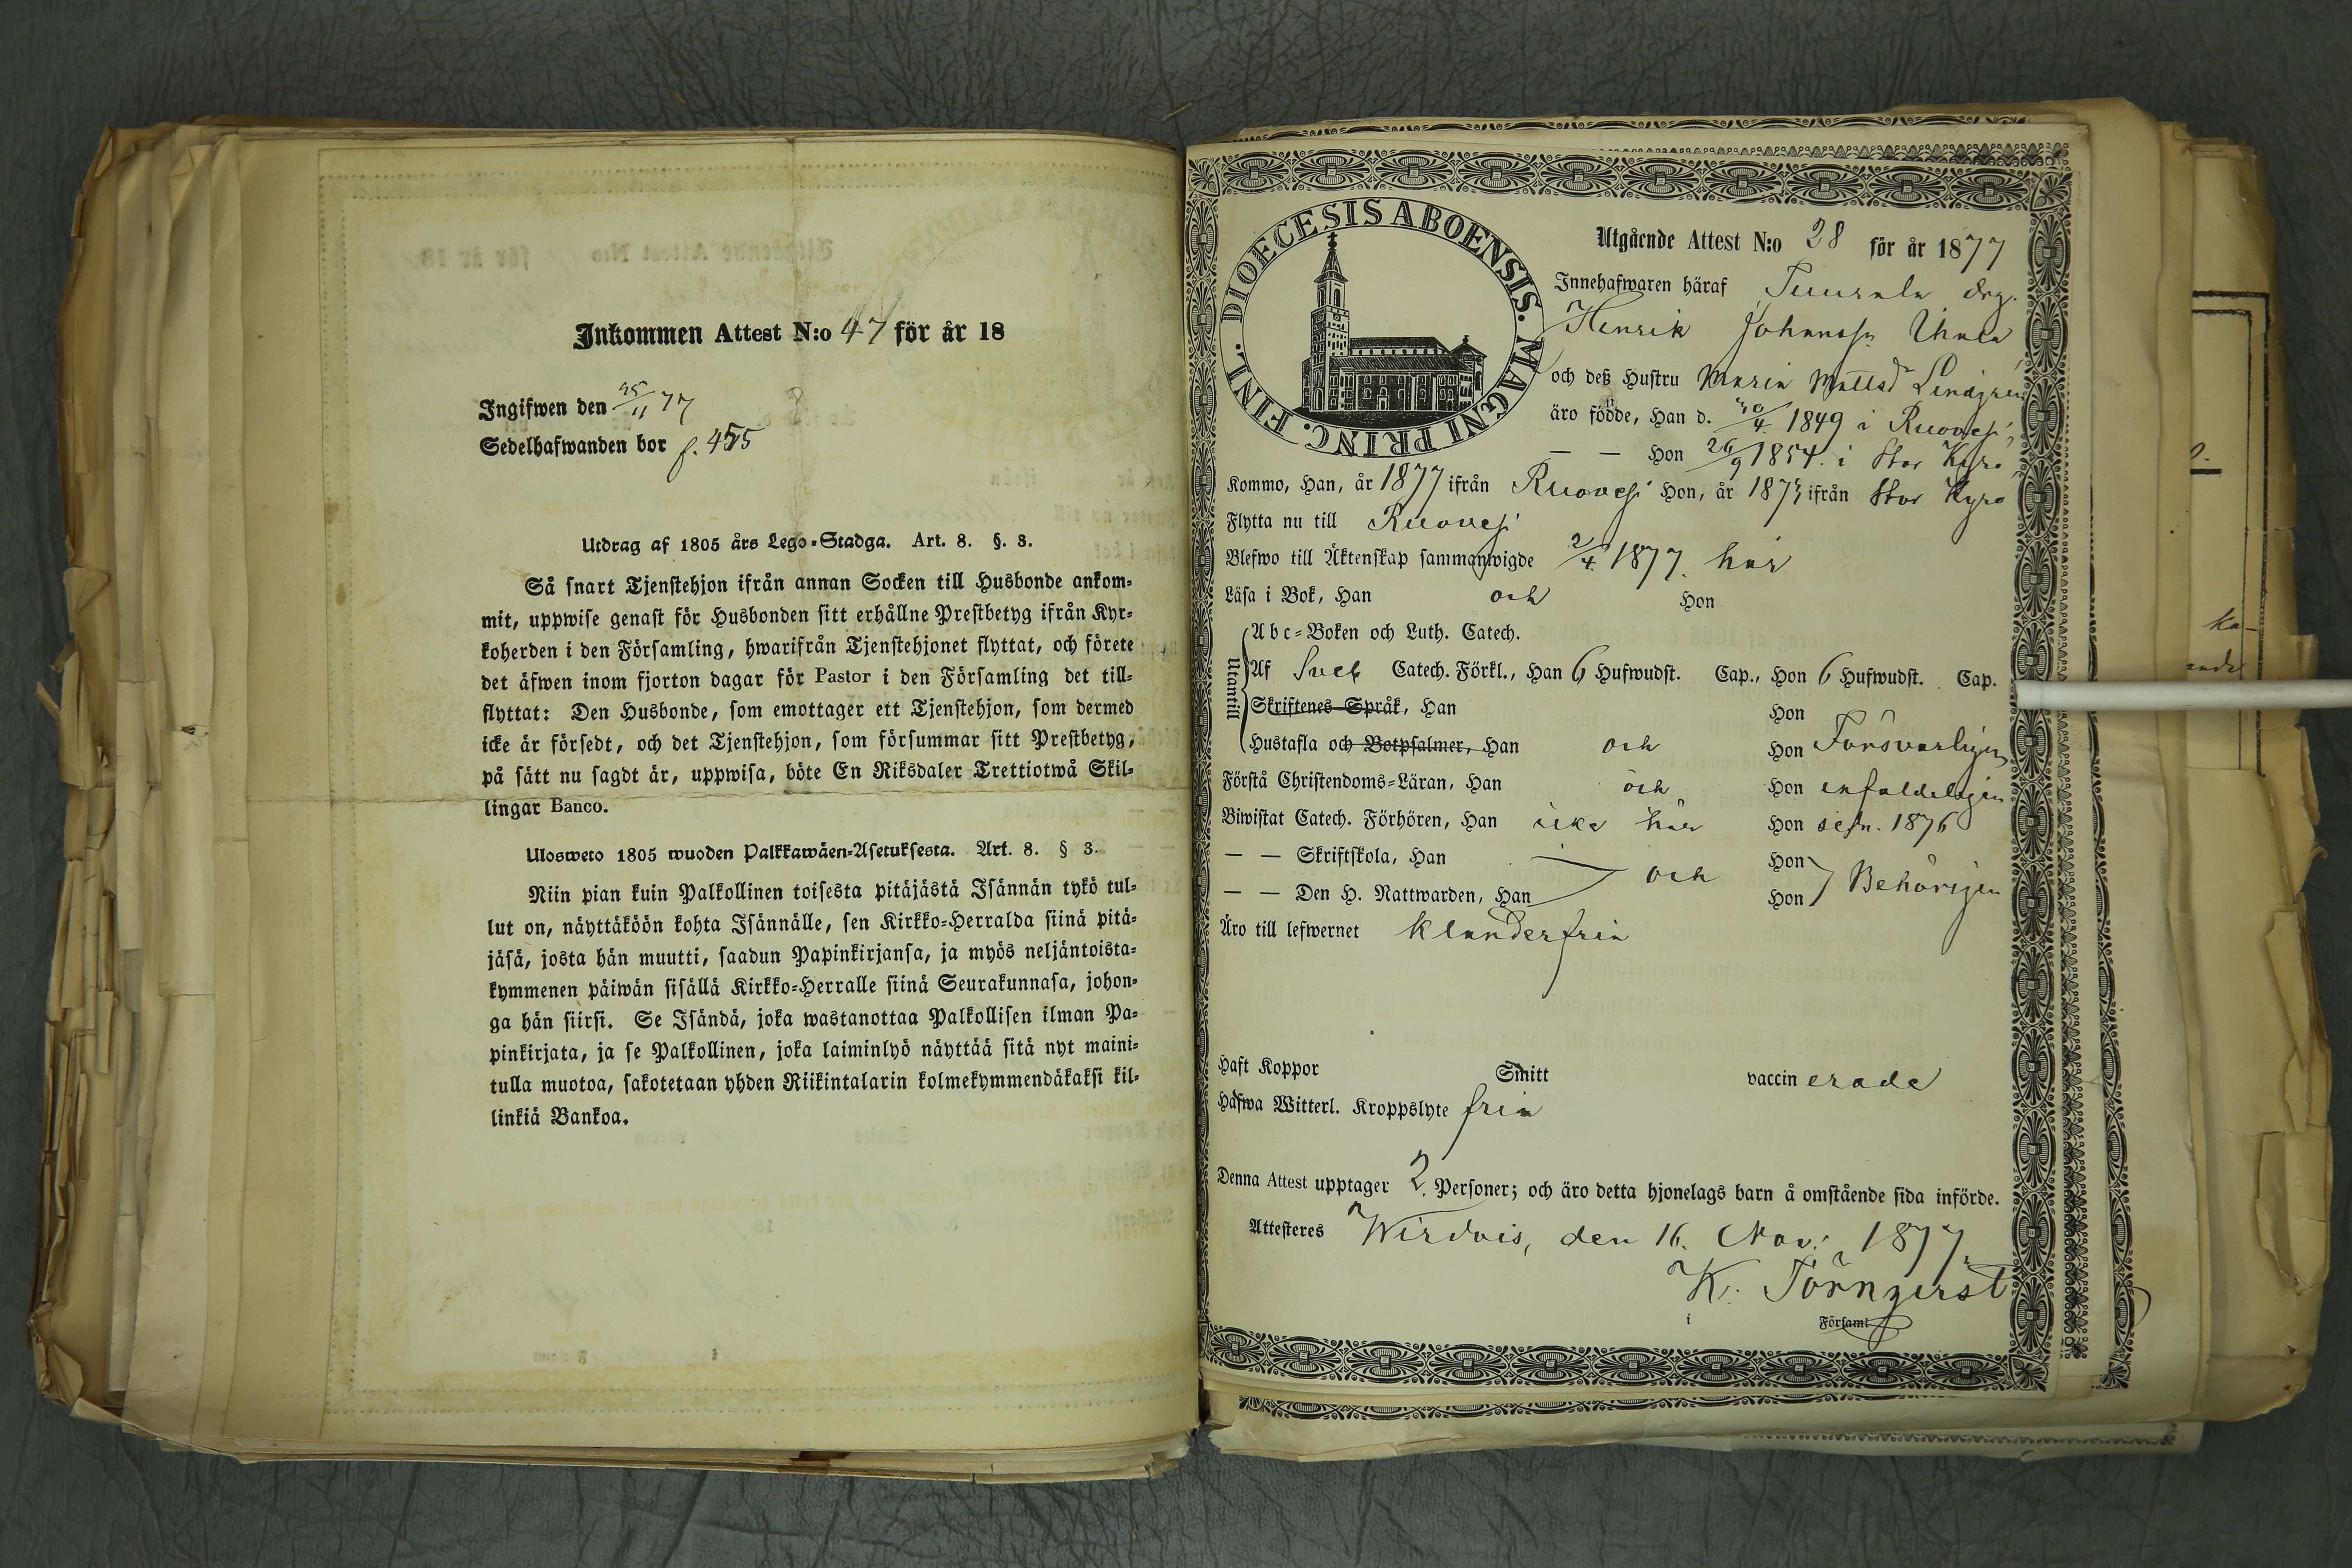 Inkommen Attest N:o 47 för år 18
Ingifwen den 25/11 77
Sedelhafwanden bor p. 455
Utdrag af 1805 års Lego-Stadga. Art. 8. §. 3.
Så snart Tjenstehjon ifrån annan Socken till Husbonde ankom-
mit, uppwise genast för Husbonden sitt erhållne Prestbetyg ifrån Kyr-
koherden i den Församling, hwarifrån Tjenstehjonet flyttat, och förete
det äfwen inom fjorton dagar för Pastor i den Församling det till-
flyttat: Den Husbonde, som emottager ett Tjenstehjon, som dermed
icke är försedt, och det Tjenstehjon, som försummar sitt Prestbetyg,
på sätt nu sagdt är, uppwisa, böte En Riksdaler Trettiotwå Skil-
lingar Banco.
Ulosweto 1805 wuoden Palkkawäen-Asetuksesta. Art. 8. § 3.
Niin pian kuin Palkollinen toisesta pitäjästä Isännän tykö tul-
lut on, näyttäköön kohta Isännälle, sen Kirkko-Herralda siinä pitä-
jäsä, josta hän muutti, saadun Papinkirjansa, ja myös neljäntoista-
kymmenen päiwän sisällä Kirkko-Herralle siinä Seurakunnasa, johon-
ga hän siirsi. Se Isändä, joka wastanottaa Palkollisen ilman Pa-
pinkirjata, ja se Palkollinen, joka laiminlyö näyttää sitä nyt maini-
tulla muotoa, sakotetaan yhden Riikintalarin kolmekymmendäkaksi kil-
linkiä Bankoa.
DIOECESIS ABOENSIS. MAGNI PRINC. FINL.
Utgående Attest N:o 28 för år 1877
Innehafwaren häraf drg.
Henrik Johanss. Uhala
och deß Hustru Maria Mattsd Lindgren
äro födde, Han d. 30/4 1849 i Ruovesi,
— — Hon 26/9 1854. i Stor Kyro
Kommo, Han, år 1877 ifrån Ruovesi Hon, år 1873 ifrån Stor Kyro
Flytta nu till Ruovesi
Blefwo till Äktenskap sammanwigde 2/4 1877. här
Läsa i Bok, Han och Hon
Utantill
Abc-Boken och Luth. Catech.
Af Sveb Catech. Förkl., Han 6 Hufwudst. Cap., Hon 6 Hufwudst. Cap.
Skriftenes Språk, Han Hon
Hustafla och Botpsalmer, Han och Hon Försvarligen
Förstå Christendoms-Läran, Han och Hon enfaldeligen
Biwistat Catech. Förhören, Han icke här Hon sedn. 1876
— — Skriftskola, Han Hon
och Behörigen
— — Den H. Nattwarden, Han Hon
Äro till lefwernet klanderfria
Haft Koppor Smitt vaccinerade
Hafwa Witterl. Kroppslyte fria
Denna Attest upptager 2. Personer; och äro detta hjonelags barn å omstående sida införde.
Attesteres Wirdois, den 16. Nov. 1877.
K. Törnqvist
i Församl